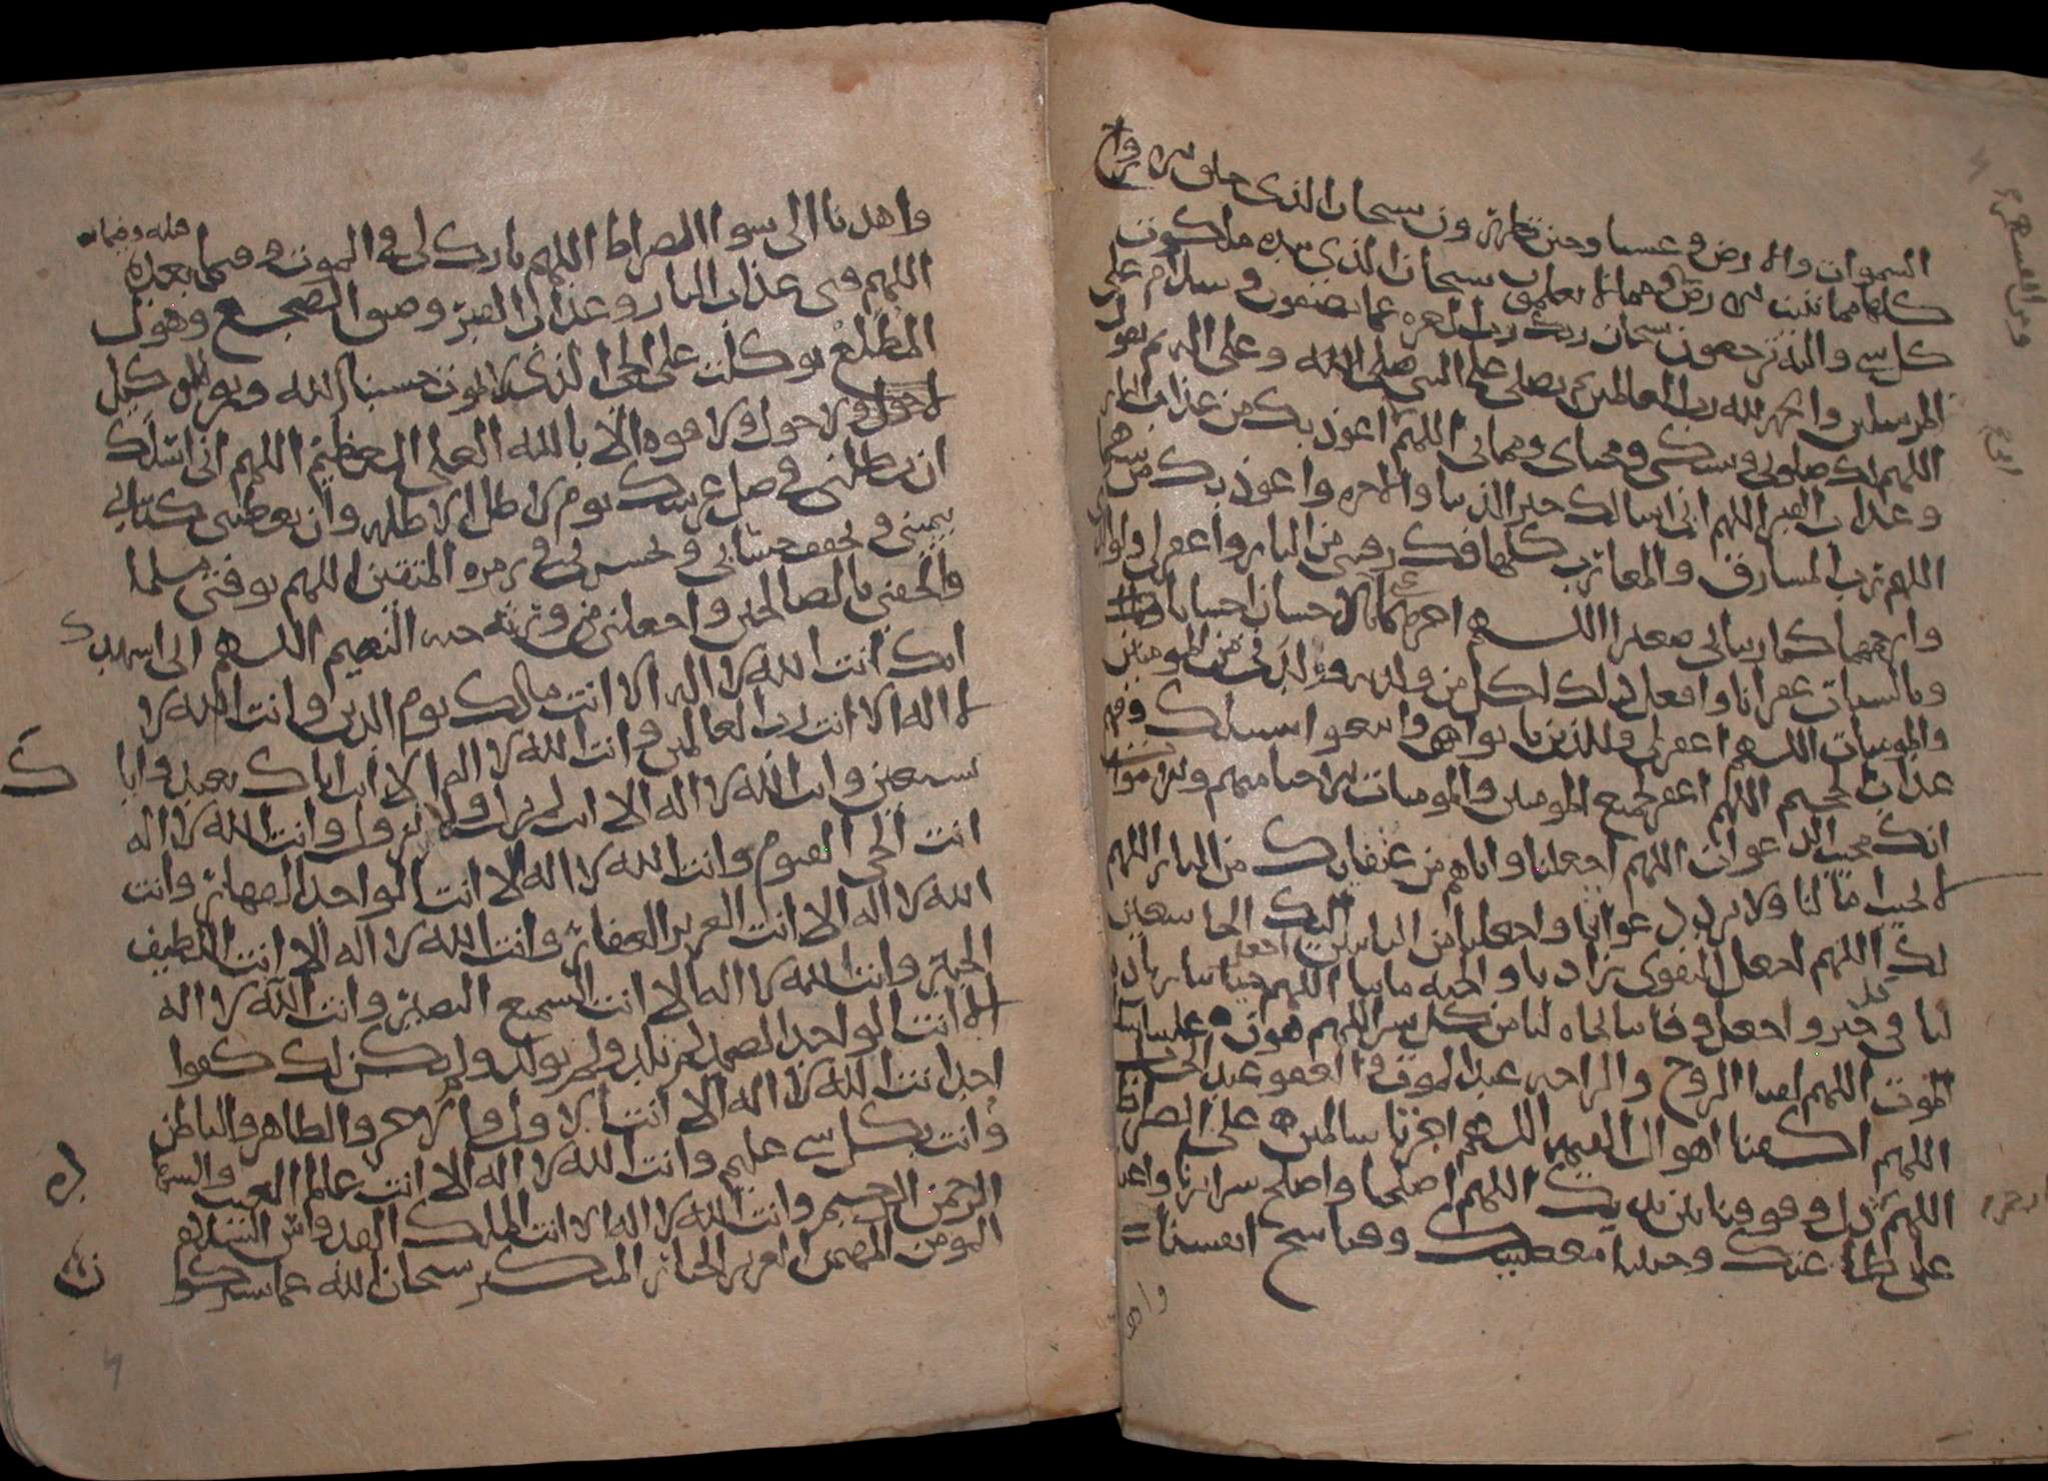 السموات والارض وعشيا وحين تظهرون سبحان الذى خلق الازواج
كلها مما تنبت الارض ومما لا يعلمون سبحان الذى بيده ملكوت
كل شى واليه ترجعون سبحان ربك رب العزه عما يصفون وسلام على
المرسلين والحمد لله رب العالمين يصلى على النبى صلى الله وعلى اله ثم يقول
اللهم لك صلوتى ونسكى ومحياى ومماتى اللهم اعوذ بك من عذاب النار
وعذاب القبر اللهم انى اسالك خير الدنيا والاخره واعوذ بك من شرهما
اللهم رب المشارق والمغارب كلها فك رقبتى من النار واغفر لى ولوالدى
وارحمهما كما ربيانى صغيرا اللهم اجزهما بالاحسان احسانا
وبالسيات غفرانا وافعل ذلك لكل من ولدنى من المومنين
والمومنات اللهم اغفر لى وللذين تابوا واتبعوا سبيلك وقهم
عذاب الجحيم اللهم اغفر لجميع المومنين والمومنات الاحيا منهم والاموات
انك مجيب الدعوات اللهم اجعلنا واياهم من عتقايك من النار اللهم
لا تخيب امالنا ولا ترد دعوانا واجعلنا من التايبين اليك الخاشعين
لك اللهم اجعل التقوى زادنا والجنه مابنا اللهم اجعل حياتنا زيادة
لنا فى كل خير واجعل وفاتنا نجاه لنا من كل شر اللهم هون علينا سكرات
الموت اللهم لقنا الروح والراحه عند الموت والعفو عند الحساب
اللهم اكفنا اهوال القيمه اللهم اجزنا سالمين على الصراط
اللهم وقوفنا بين يديك اللهم اصلحنا واصلح سرايرنا واعنا
على طاعتك وجنبنا معصيتك وقنا شح انفسنا
واهد
واهدنا الى سوا الصراط اللهم بارك لى فى الموت وفيما بعده
اللهم قنى عذاب النار وعذاب القبر وضيق المضجع وهول
المطلع توكلت على الحى الذى لا يموت حسبنا الله ونعم الوكيل
ولا حول ولا قوه الا بالله العلى العظيم اللهم انى اسئلك
ان تظلنى فى ظل عرشك يوم لا ظل الا ظله وان تعطنى كتابى
بيمينى وتخفف حسابى وتحشرنى فى زمره المتقين اللهم توفنى مسلما
والحقنى بالصالحين واجعلنى من ورثه جنه النعيم اللهم انى اشهدك
انك انت الله لا اله الا انت مالك يوم الدين وانت الله لا
اله الا انت رب العالمين وانت الله لا اله الا انت اياك نعبد وايا
ك
نستعين وانت الله لا اله الا انت لم تزل ولا تزول وانت الله لا اله
انت الحى القيوم وانت الله لا اله الا انت الواحد القهار وانت
الله لا اله الا انت العزيز الغفار وانت الله لا اله الا انت اللطيف
الخبير وانت الله لا اله الا انت السميع البصير وانت الله لا اله
الا انت الواحد الصمد لم تلد ولم تولد ولم يكن لك كفوا
احد انت الله لا اله الا انت الاول والاخر والظاهر والباطن
وانت بكل شى عليم وانت الله لا اله الا انت عالم الغيب والشها
ده
الرحمن الرحيم وانت الله لا اله الا انت الملك القدوس السلام
المومن المهيمن العزيز الجبار المتكبر سبحان الله عما يشركو
ن